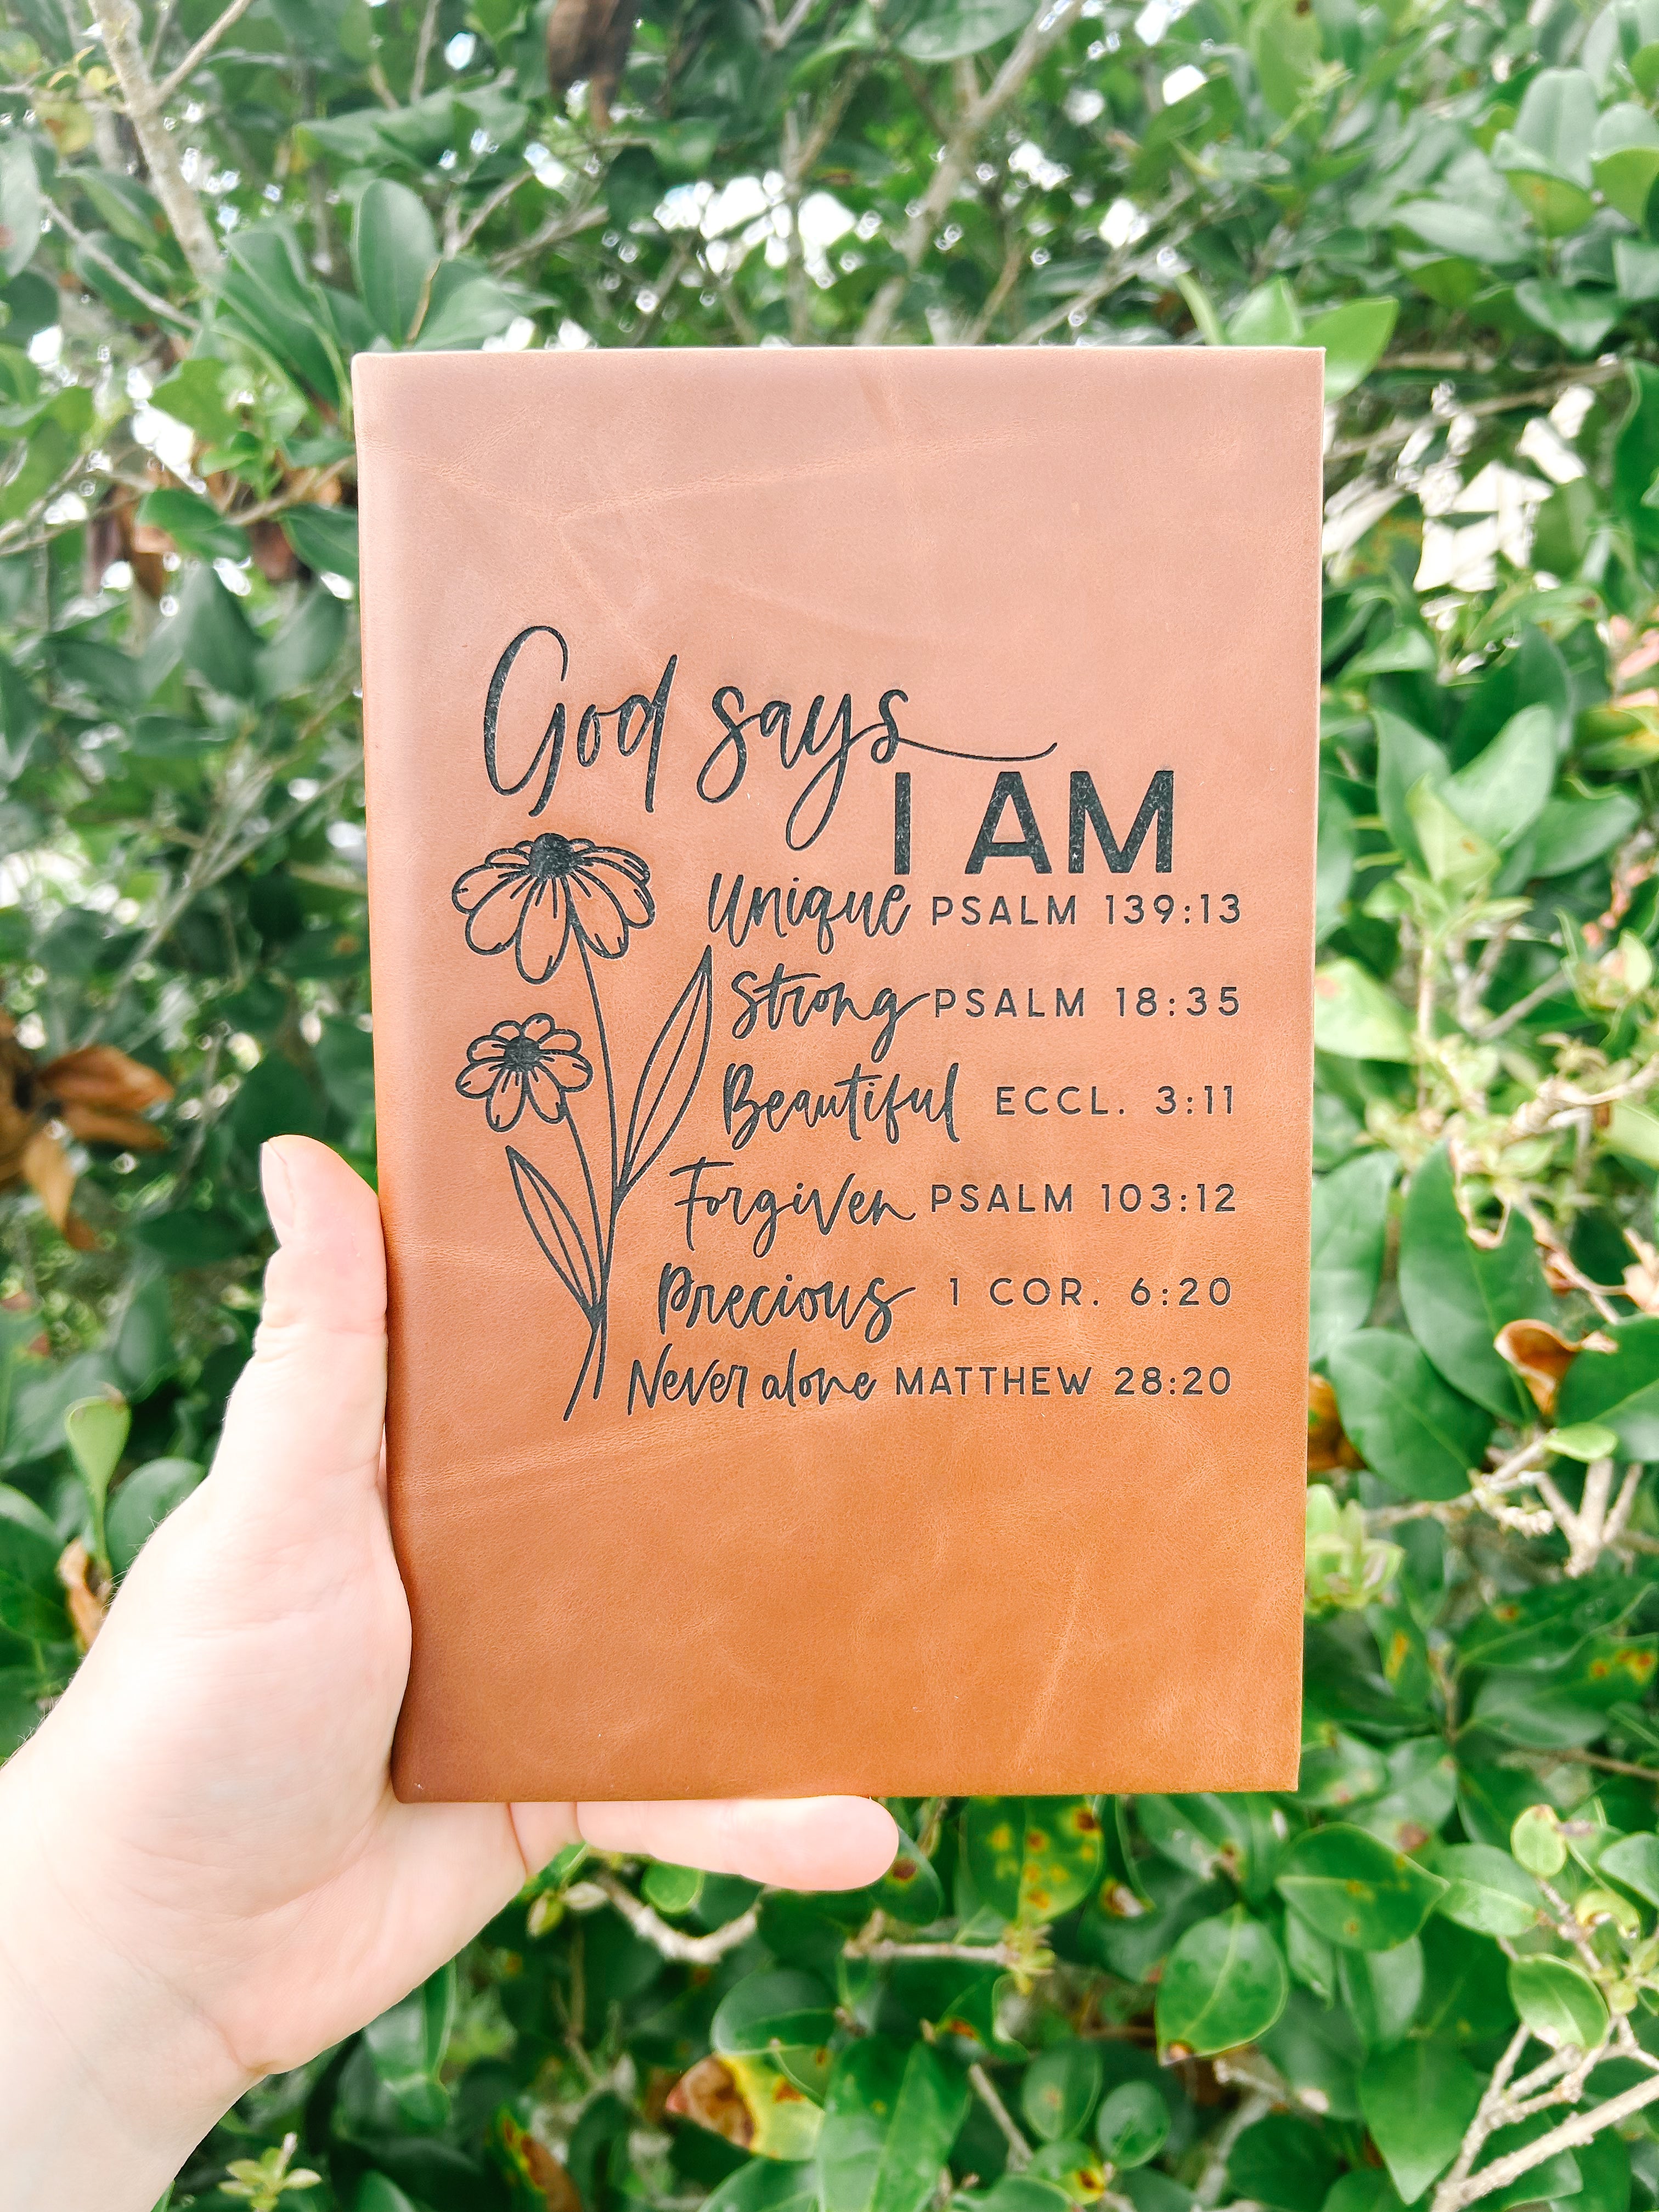 God says
I AM
Unique PSALM 139:13
Strong PSALM 18:35
Beautiful ECCL. 3:11
Forgiven PSALM 103:12
Precious 1 COR. 6:20
Never alone MATTHEW 28:20